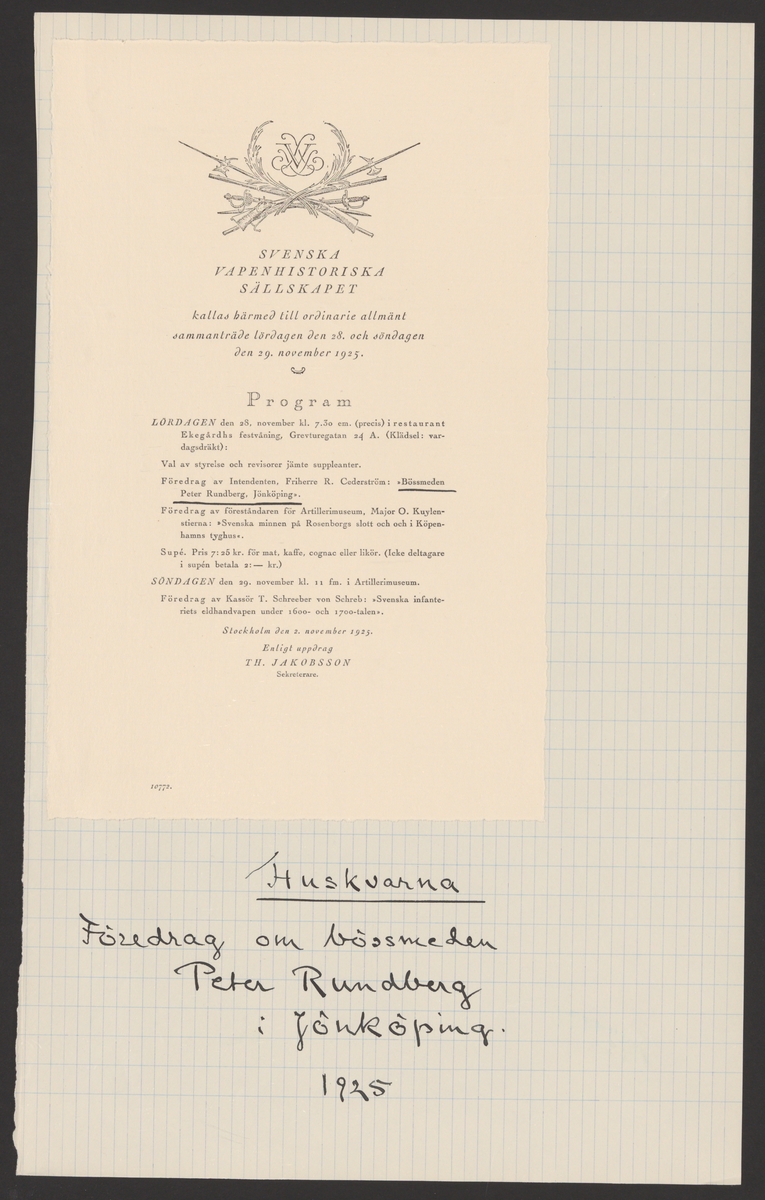 SVENSKA
VAPENHISTORISKA
SÄLLSKAPET
kallas härmed till ordinarie allmänt
sammanträde lördagen den 28. och söndagen
den 29. november 1925.
Program
LÖRDAGEN den 28. november kl. 7.30 em. (precis) i restaurant
Ekegårdhs festvåning, Grevturegatan 24 A. (Klädsel: var-
dagsdräkt):
Val av styrelse och revisorer jämte suppleanter.
Föredrag av Intendenten, Friherre R. Cederström: »Bössmeden
Peter Rundberg, Jönköping».
Föredrag av föreståndaren för Artillerimuseum, Major O. Kuylen-
stierna: »Svenska minnen på Rosenborgs slott och och i Köpen-
hamns tyghus».
Supé. Pris 7:25 kr. för mat, kaffe, cognac eller likör. (Icke deltagare
i supén betala 2:— kr.)
SÖNDAGEN den 29. november kl. 11 fm. i Artillerimuseum.
Föredrag av Kassör T. Schreeber von Schreb: »Svenska infante-
riets eldhandvapen under 1600- och 1700-talen».
Stockholm den 2. november 1925.
Enligt uppdrag
TH. JAKOBSSON
Sekreterare.
10772.
Huskvarna
Föredrag om bössmeden
Peter Rundberg
i Jönköping.
1925